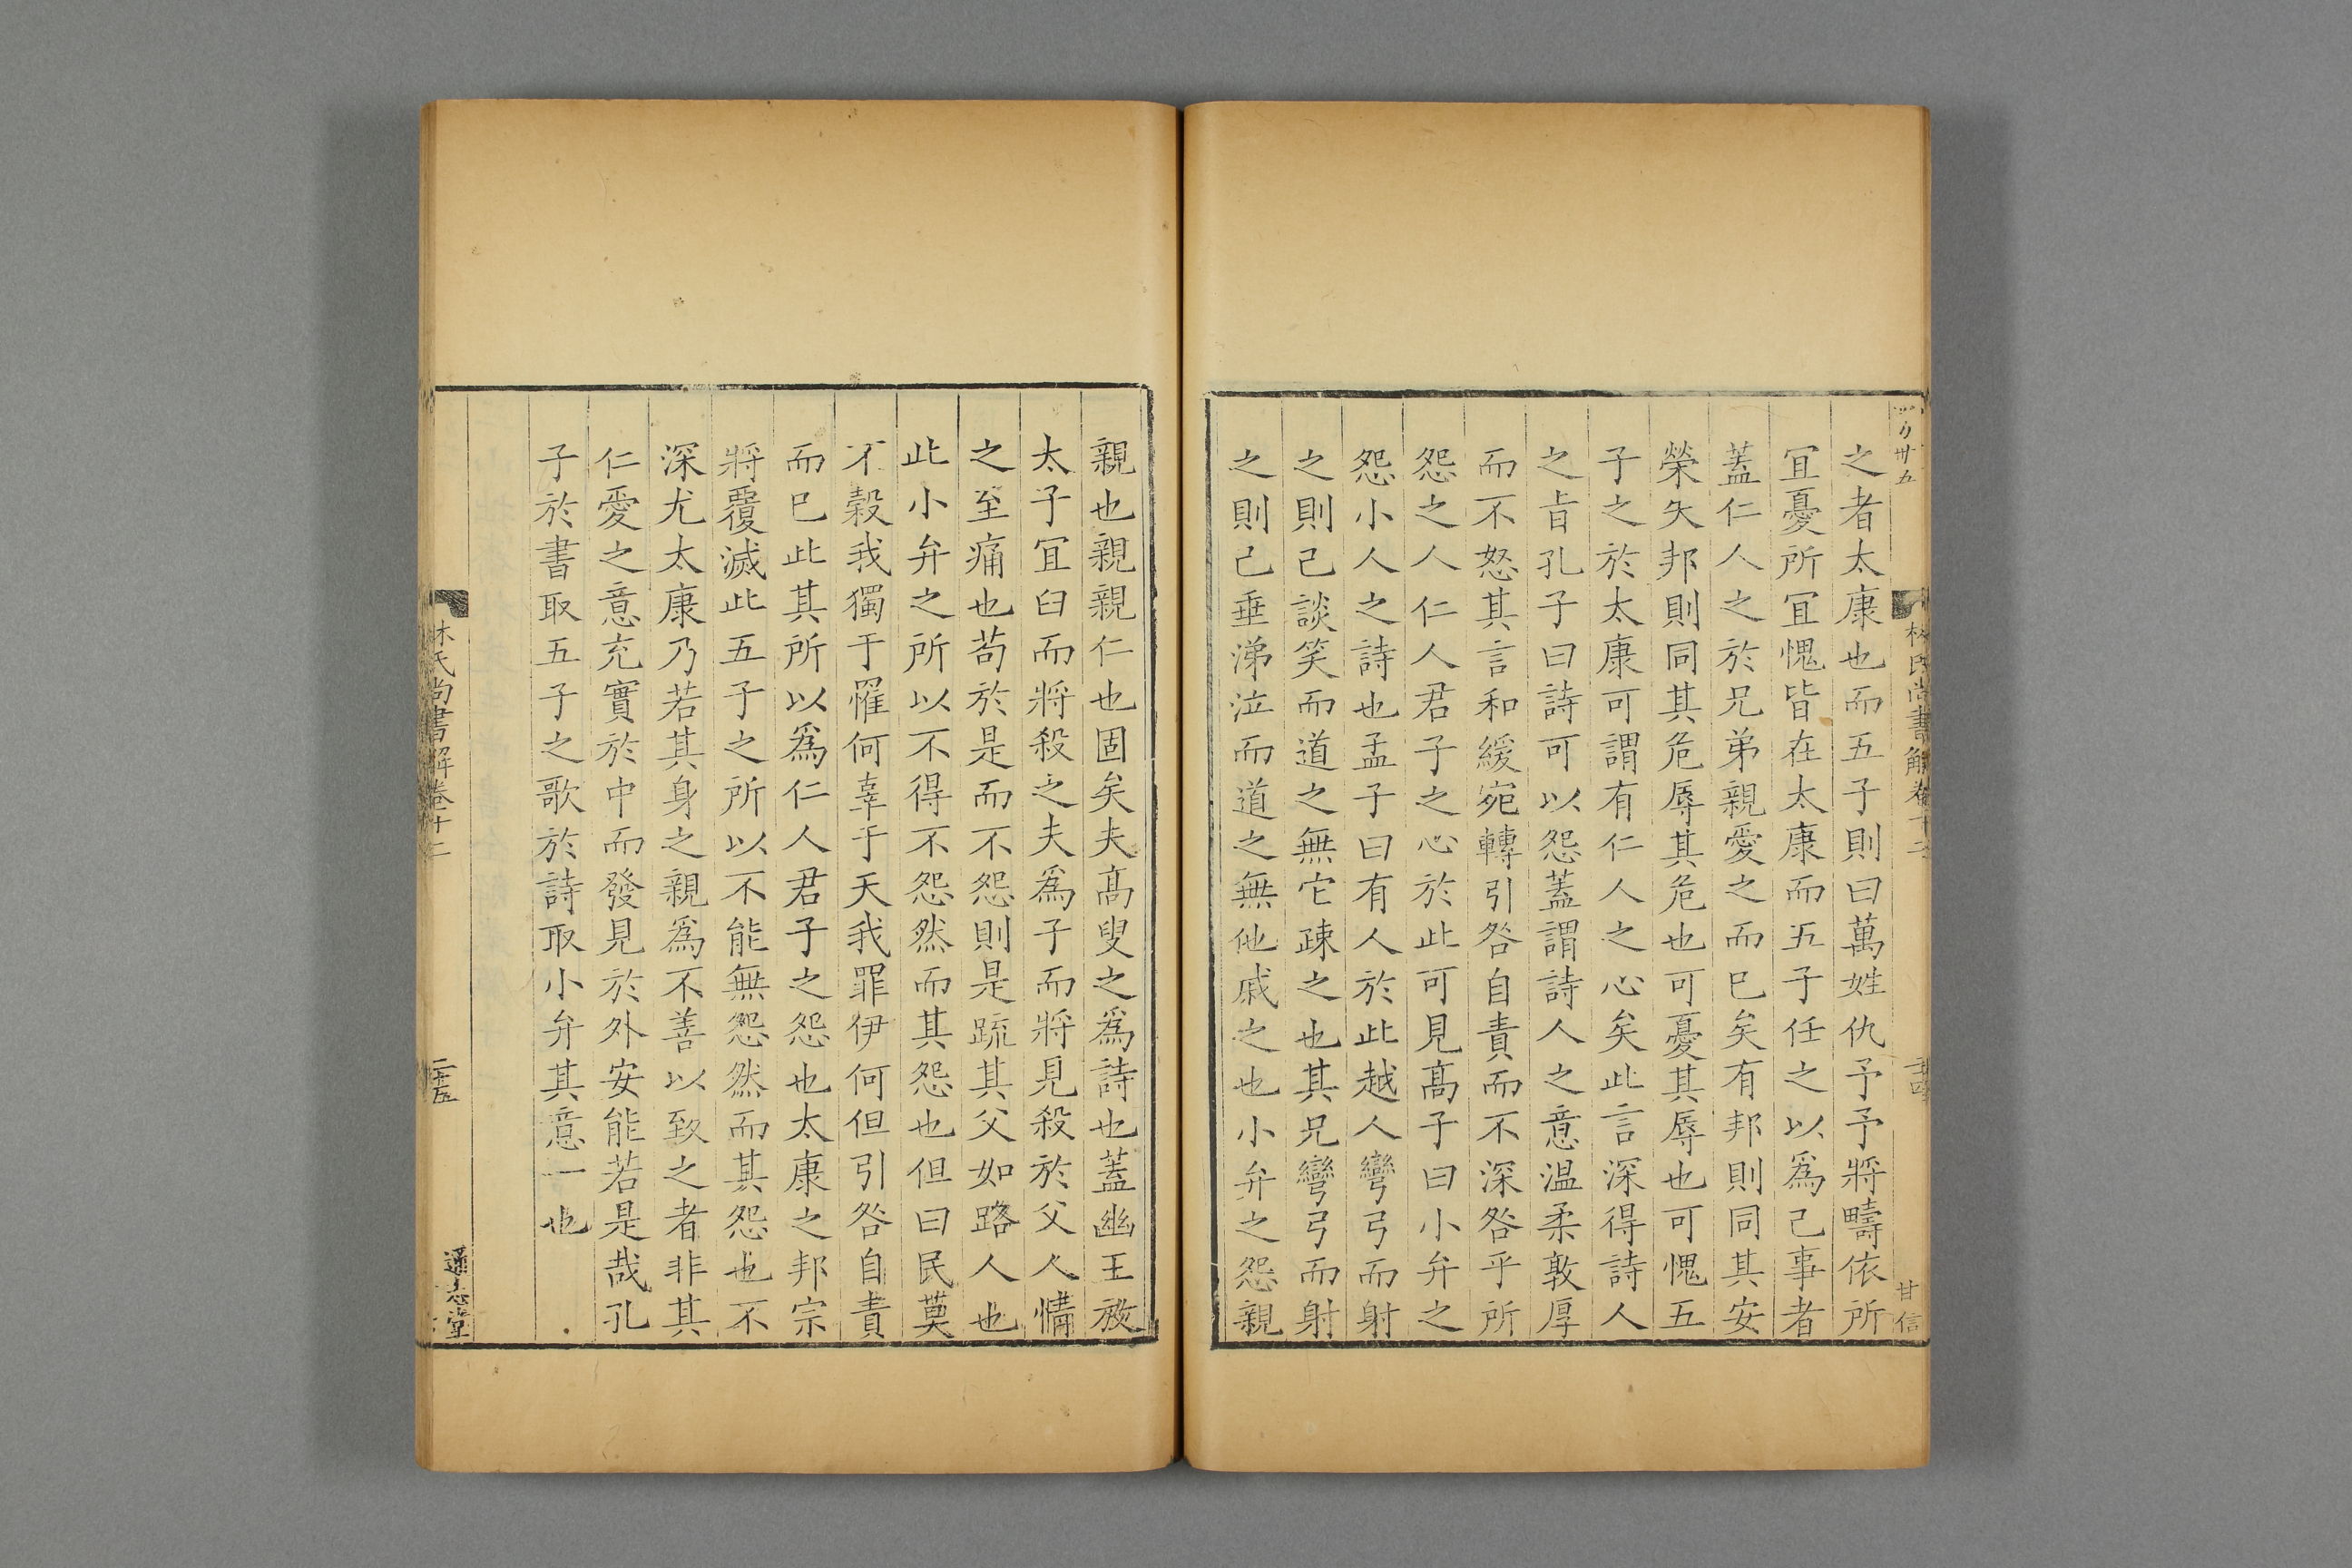 林氏尚書解卷十二
甘信
之者太康也而五子則曰萬姓仇予予將疇依所
宜憂所宜愧皆在太康而五子任之以爲己事者
蓋仁人之於兄弟親愛之而巳矣有邦則同其安
榮失邦則同其危辱其危也可憂其辱也可愧五
子之於太康可謂有仁人之心矣此言深得詩人
之旨孔子曰詩可以怨蓋謂詩人之意温柔敦厚
而不怒其言和緩宛轉引咎自責而不深咎乎所
怨之人仁人君子之心於此可見髙子曰小弁之
怨小人之詩也孟子曰有人於此越人彎弓而射
之則己談笑而道之無它疎之也其兄彎弓而射
之則己垂涕泣而道之無他戚之也小弁之怨親
親也親親仁也固矣夫髙叟之爲詩也蓋幽王放
太子宜臼而將殺之夫爲子而將見殺於父人情
之至痛也茍於是而不怨則是疏其父如路人也
此小弁之所以不得不怨然而其怨也但曰民莫
不穀我獨于罹何辜于天我罪伊何但引咎自責
而巳此其所以爲仁人君子之怨也太康之邦宗
將覆滅此五子之所以不能無怨然而其怨也不
深尤太康乃若其身之親爲不善以致之者非其
仁愛之意充實於中而發見於外安能若是哉孔
子於書取五子之歌於詩取小弁其意一也
林氏尚書解卷十二
二十五
通志堂